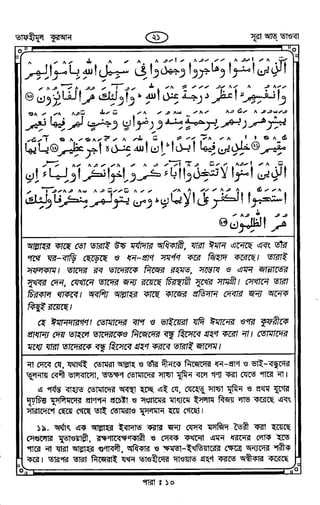 তাফহীমুল কুরআন
২১
সূরা আত তাওবা
الَّذِينَ آمَنُوا وَهَاجَرُوا وَجَاهَدُوا فِي سَبِيلِ اللَّهِ بِأَمْوَالِهِمْ
وَأَنفُسِهِمْ أَعْظَمُ دَرَجَةً عِندَ اللَّهِ وَأُولَٰئِكَ هُمُ الْفَائِزُونَ ⑳
يُبَشِّرُهُمْ رَبُّهُم بِرَحْمَةٍ مِّنْهُ وَرِضْوَانٍ وَجَنَّاتٍ لَّهُمْ فِيهَا نَعِيمٌ
مُّقِيمٌ ㉑ خَالِدِينَ فِيهَا أَبَدًا إِنَّ اللَّهَ عِندَهُ أَجْرٌ عَظِيمٌ ㉒ يَا أَيُّهَا
الَّذِينَ آمَنُوا لَا تَتَّخِذُوا آبَاءَكُمْ وَإِخْوَانَكُمْ أَوْلِيَاءَ إِنِ
اسْتَحَبُّوا الْكُفْرَ عَلَى الْإِيمَانِ وَمَن يَتَوَلَّهُم مِّنكُمْ فَأُولَٰئِكَ
هُمُ الظَّالِمُونَ ㉓
আল্লাহর কাছে তো তারাই উচ্চ মর্যাদার অধিকারী, যারা ঈমান এনেছে এবং তাঁর
পথে ঘর-বাড়ি ছেড়েছে ও ধন-প্রাণ সমর্পণ করে জিহাদ করেছে। তারাই
সফলকাম। তাদের রব তাদেরকে নিজের রহমত, সন্তোষ ও এমন জান্নাতের
সুখবর দেন, যেখানে তাদের জন্য রয়েছে চিরস্থায়ী সুখের সামগ্রী। সেখানে তারা
চিরকাল থাকবে। অবশ্যি আল্লাহর কাছে কাজের প্রতিদান দেবার জন্য অনেক
কিছুই রয়েছে।
হে ঈমানদারগণ! তোমাদের বাপ ও ভাইয়েরা যদি ঈমানের ওপর কুফরীকে
প্রাধান্য দেয় তাহলে তাদেরকেও নিজেদের বন্ধু হিসেবে গ্রহণ করো না। তোমাদের
মধ্যে যারা তাদেরকে বন্ধু হিসেবে গ্রহণ করবে তারাই জালেম।
না দেবে যে, যথার্থই তোমরা আল্লাহ ও তাঁর দীনকে নিজেদের ধন-প্রাণ ও ভাই-বন্ধুদের
তুলনায় বেশী ভালবাসো, ততক্ষণ তোমাদের সাচ্চা মুমিন বলে গণ্য করা যেতে পারে না।
এ পর্যন্ত বাহ্যত তোমাদের অবস্থা হচ্ছে এই যে, যেহেতু সাচ্চা মুমিন ও প্রথম যুগের
দৃঢ়চিত্ত মুসলিমদের প্রাণপন প্রচেষ্টা ও সংগ্রামের মাধ্যমে ইসলাম বিজয় লাভ করেছে এবং
সারাদেশে ছেয়ে গেছে তাই তোমরাও মুসলমান হয়ে গেছো।
১৯. অর্থাৎ এক আল্লাহর ইবাদাত করার জন্য যেসব মসজিদ তৈরী করা হয়েছে
সেগুলোর মুতাওয়াল্লী, রক্ষণাবেক্ষণকারী ও সেবক কখনো এমন ধরনের লোক হতে
পারে না যারা আল্লাহর গুণাবলী, অধিকার ও ক্ষমতা-ইখতিয়ারের ক্ষেত্রে অন্যদের শরীক
করে। তারপর তারা নিজেরাই যখন তাওহীদের দাওয়াত গ্রহণ করতে অস্বীকার করেছে
পারা : ১০